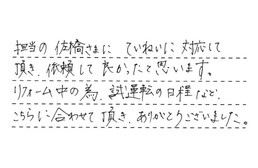 担当の佐橋さまに ていねいに対応して
頂き、依頼して良かったと思います。
リフォーム中の為、試運転の日程など、
こちらに合わせて頂き、ありがとうございました。